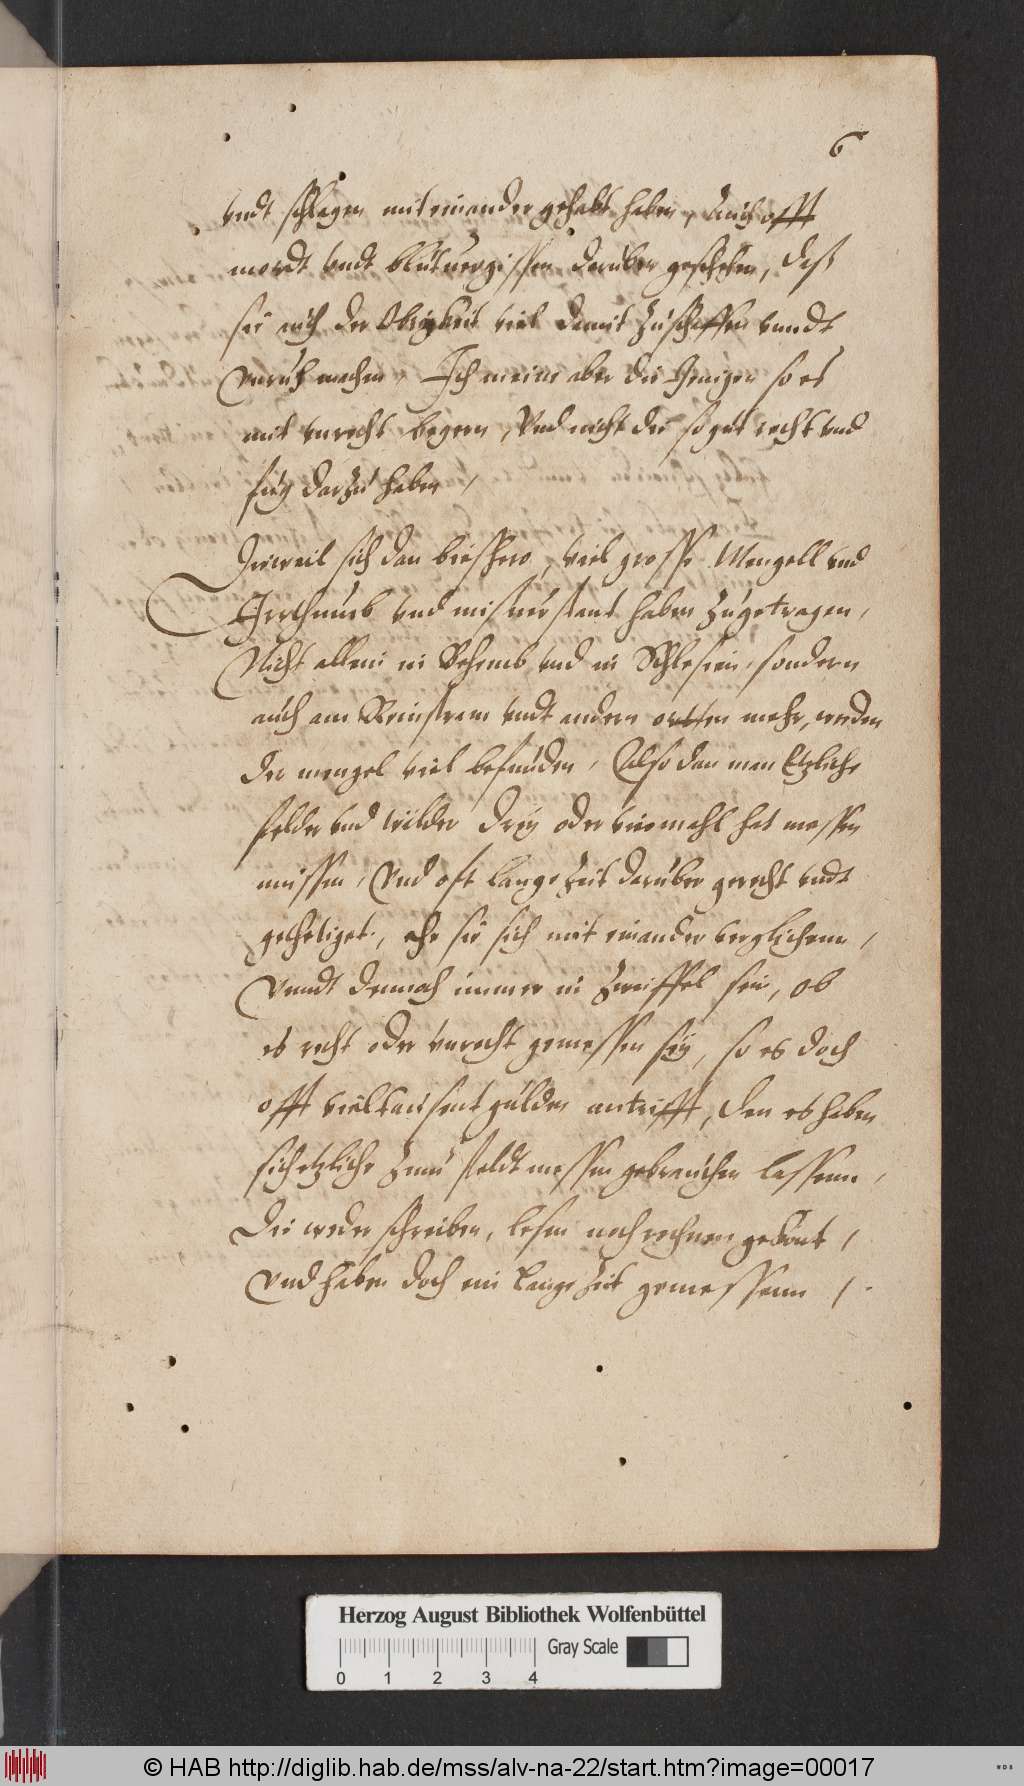 6
vndt schlagen mit einander gehabt haben, auch offt
mordt vndt blutuergissen daruber geschehen, daß
sie auch der Obrigkeit viel damit zuschaffen vnndt
Vnruh machen, Ich meine aber die Jenigen so es
mit vnrecht begern, Vnd nicht die so gut recht vnd
fug darzu haben,
Dieweil sich dan bieshero, viel grosse Mengell vnd
Irrthumb vnd misuerstant haben zugetragen,
Nicht allein in Behemb vnd in Schlesien, sondern
auch am Reinstram vndt andern ortten mehr, werden
der mengel viel befunden, Also dan man Etzliche
felder vnd wälder drey oder viermahl hat messen
mussen, Vnd oft lange Zeit daruber gerecht vndt
ehe sie sich mit einander verglichenn,
Vnndt dennoch immer in Zweiffel sein, ob
es recht oder vnrecht gemessen sey, so es doch
offt viel tausent gulden antrifft, den es haben
sich etzliche zum feldt messen gebrauchen lassenn,
die weder schreiben, lesen noch rechnen gekont,
Vnd haben doch ein lange Zeit gemessenn,
Herzog August Bibliothek Wolfenbüttel
Gray Scale
0 1 2 3 4
© HAB http://diglib.hab.de/mss/alv-na-22/start.htm?image=00017